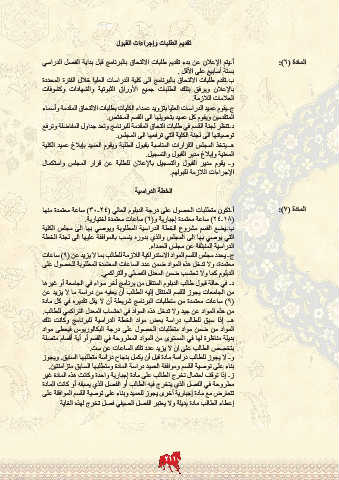 تقديم الطلبات وإجراءات القبول
المادة (٦): أ-يتم الإعلان عن بدء تقديم طلبات الالتحاق بالبرنامج قبل بداية الفصل الدراسي
بستة أسابيع على الأقل.
ب-تقدم طلبات الالتحاق بالبرنامج الى كلية الدراسات العليا خلال الفترة المحددة
بالإعلان ويرفق بتلك الطلبات جميع الأوراق الثبوتية والشهادات وكشوفات
العلامات اللازمة.
ج-يقوم عميد الدراسات العليا بتزويد عمداء الكليات بطلبات الالتحاق المقدمة وأسماء
المتقدمين ويقوم كل عميد بتحويلها الى القسم المختص.
د-تنظر لجنة القسم في طلبات التحاق المقدمة للبرنامج وتعد جداول المفاضلة وترفع
توصياتها الى لجنة الكلية التي ترفعها الى المجلس.
هـ-يتخذ المجلس القرارات المناسبة بقبول الطلبة ويقوم العميد بإبلاغ عميد الكلية
المعنية وإبلاغ مدير القبول والتسجيل.
و- يقوم مدير القبول والتسجيل بالإعلان للطلبة عن قرار المجلس واستكمال
الإجراءات اللازمة لقبولهم.
الخطة الدراسية
المادة (٧): أ-تكون متطلبات الحصول على درجة الدبلوم العالي (٢٤-٣٠) ساعة معتمدة منها
(١٨-٢٤) ساعة معتمدة إجبارية و(٦) ساعات معتمدة اختيارية.
ب-يضع القسم مشروع الخطة الدراسية المطلوبة ويوصي بها الى مجلس الكلية
الذي يوصي بها الى المجلس والذي بدوره ينسب بالموافقة عليها الى لجنة الخطة
الدراسية المنبثقة عن مجلس العمداء.
ج-يحدد مجلس القسم المواد الاستدراكية اللازمة للطالب بما لا يزيد عن (٩) ساعات
معتمدة، ولا تدخل هذه المواد ضمن عدد الساعات المعتمدة المطلوبة للحصول على
الدبلوم كما ولا تحتسب ضمن المعدل الفصلي والتراكمي.
د- في حالة قبول طالب الدبلوم المنتقل من برنامج آخر سواء في الجامعة أو غيرها
من الجامعات يجوز للقسم المنتقل إليه الطالب أن يعفيه من دراسة ما لا يزيد عن
(٩) ساعات معتمدة من متطلبات البرنامج شريطة أن لا يقل تقديره في كل مادة
من هذه المواد عن جيد ولا تدخل هذه المواد في احتساب المعدل التراكمي للطالب.
هـ- إذا سبق للطالب دراسة بعض مواد الخطة الدراسية للبرنامج وكانت تلك
المواد من ضمن مواد متطلبات الحصول على درجة البكالوريوس فيعطى مواد
بديلة مناظرة لها في المستوى من المواد المطروحة في القسم أو أية أقسام متصلة
بتخصص الطالب على أن لا يزيد عدد تلك الساعات عن ست.
و- لا يجوز للطالب دراسة مادة قبل أن يكمل بنجاح دراسة متطلبها السابق، ويجوز
بناء على توصية القسم وموافقة العميد دراسة المادة ومتطلبها السابق متزامنين.
ز- إذا توقف احتمال تخرج الطالب على مادة إجبارية واحدة وكانت هذه المادة غير
مطروحة في الفصل الذي يتخرج فيه الطالب أو الفصل الذي يسبقه أو كانت المادة
تتعارض مع مادة إجبارية أخرى يجوز للعميد وبناء على توصية القسم الموافقة على
إعطاء الطالب مادة بديلة ولا يعتبر الفصل الصيفي فصل تخرج لهذه الغاية.